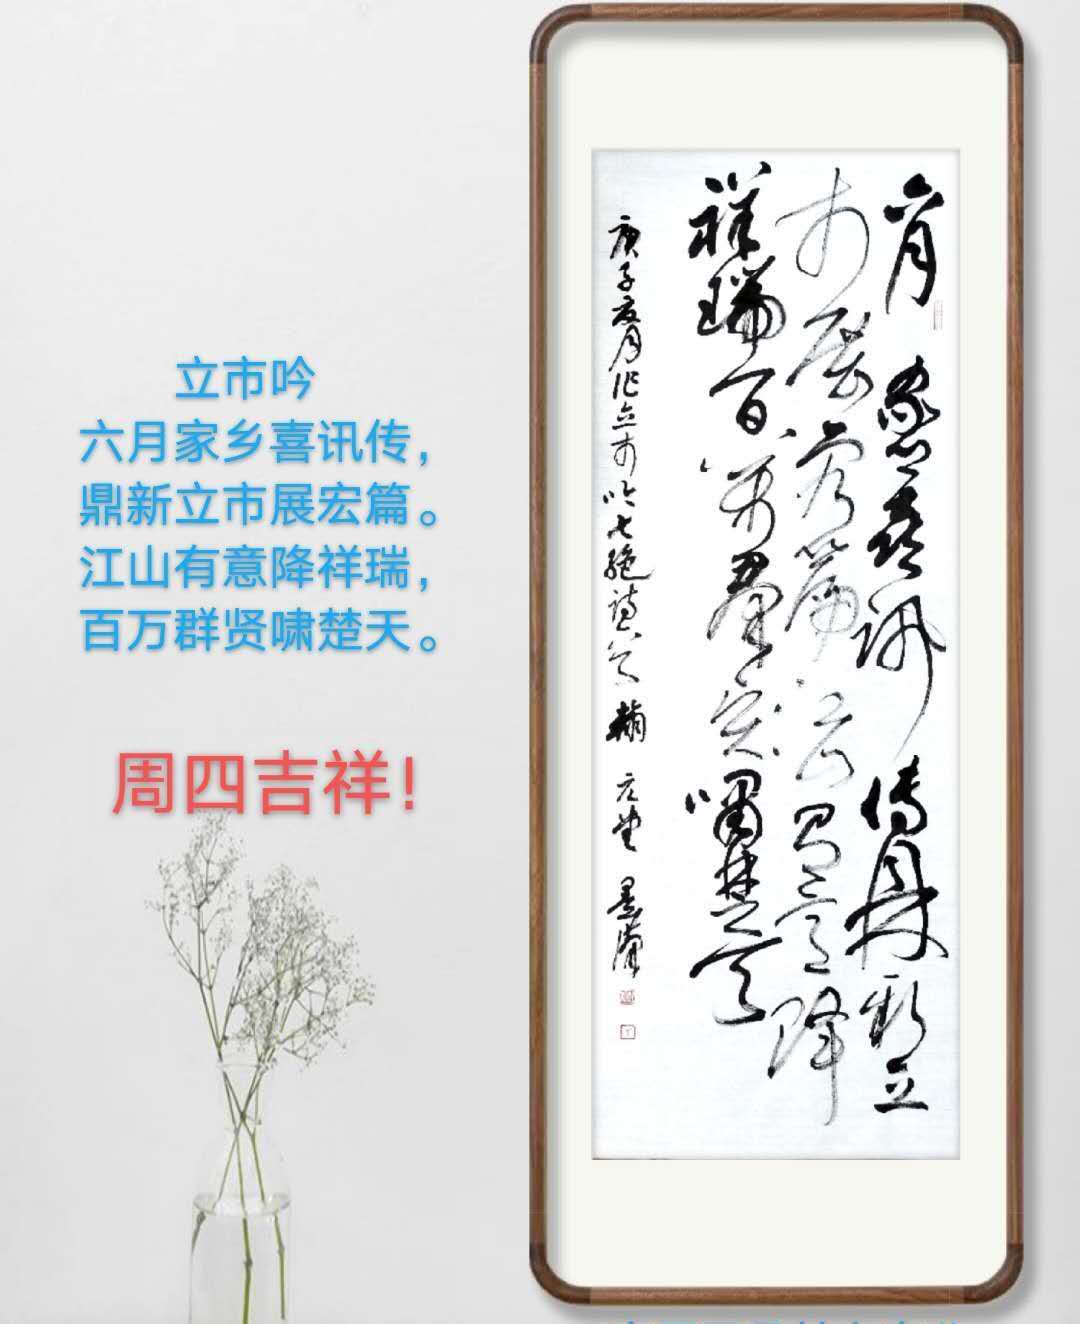 立市吟
六月家乡喜讯传，
鼎新立市展宏篇。
江山有意降祥瑞，
百万群贤啸楚天。
周四吉祥！
六月家乡喜讯传鼎新立
市展宏篇江山有意降
祥瑞百万群贤啸楚天
庚子夏月作立市吟七绝诗一首